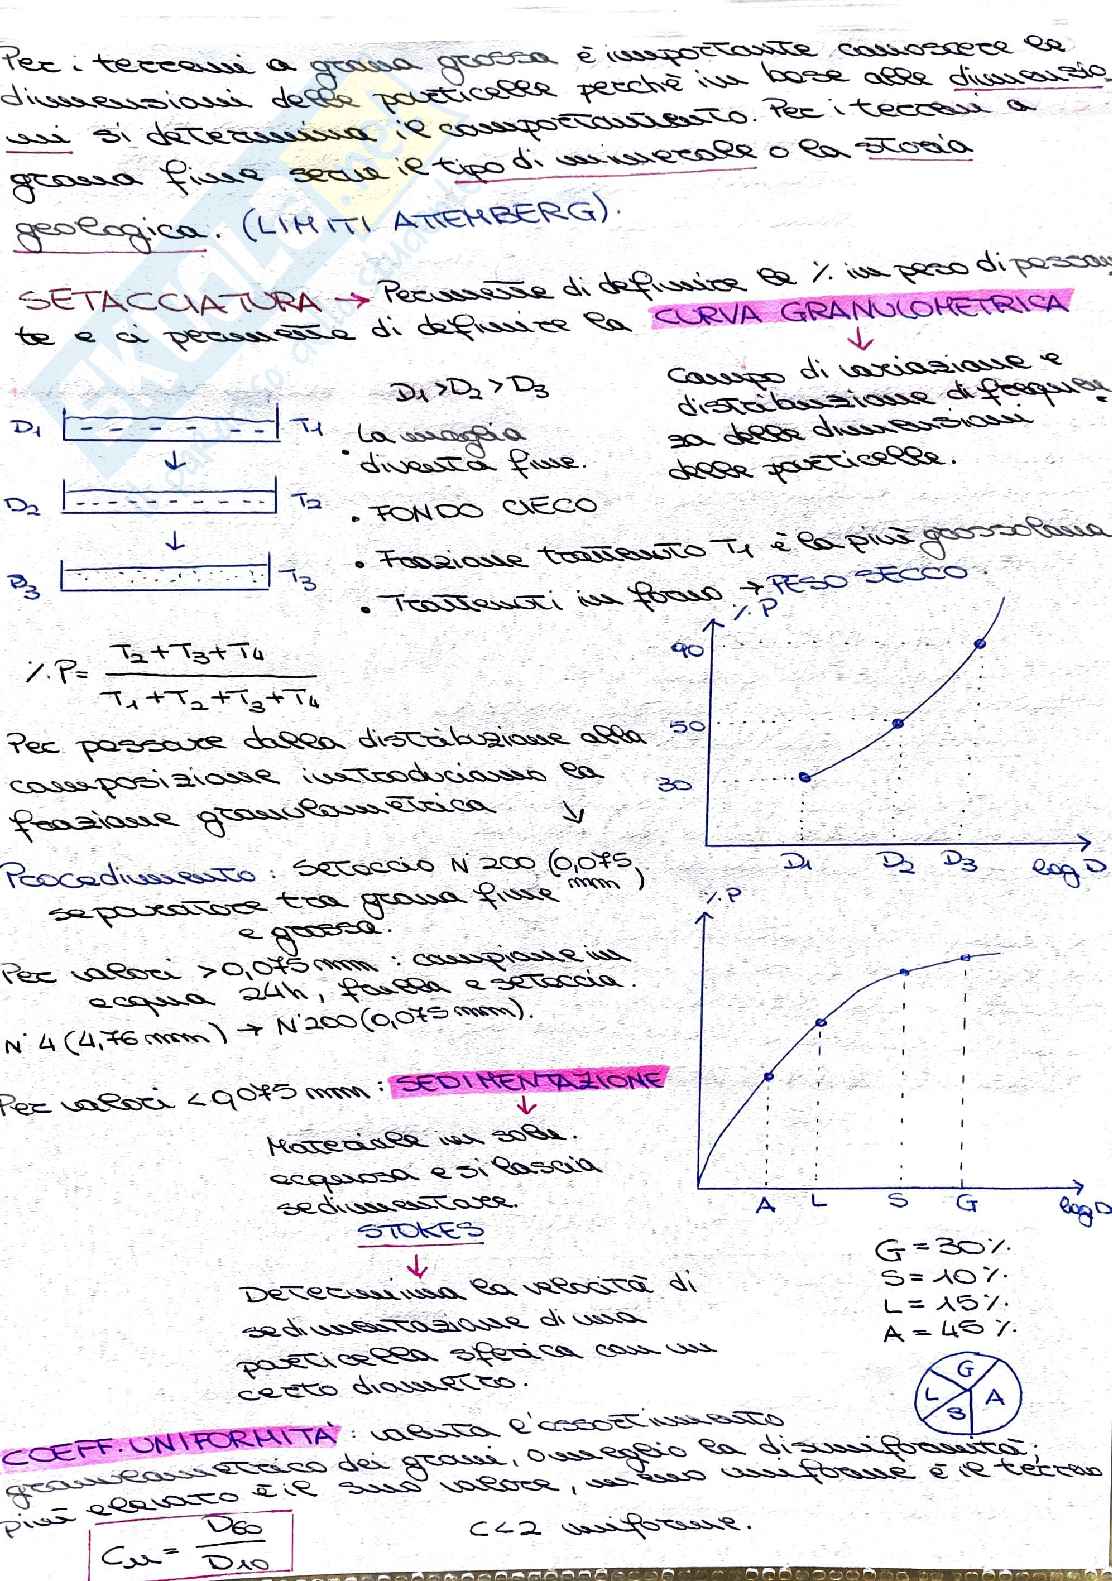 Per i terreni a grana grossa è importante conoscere le
dimensioni delle particelle perchè in base alle dimensio
ni si determina il comportamento. Per i terreni a
grana fine serve il tipo di minerale o la storia
geologica. (LIMITI ATTEMBERG).
SETACCIATURA → Permette di definire le % in peso di passan
te e ci permette di definire la CURVA GRANULOMETRICA
↓
Campo di variazione e
distribuzione di frequen
za delle dimensioni
delle particelle.
D1 > D2 > D3
D1 T1
· La maglia
diventa fine.
D2 T2
· FONDO CIECO
D3 T3
· Frazione trattenuto T1 è la più grossolana
· Trattenuti in forno → PESO SECCO.
%P = T2+T3+T4
T1+T2+T3+T4
% P
90
50
30
D1 D2 D3 log D
Per passare dalla distribuzione alla
composizione introduciamo la
frazione granulometrica
↓
Procedimento: Setaccio N°200 (0,075
mm)
separatore tra grana fine
e grossa.
Per valori >0,075 mm: campione in
acqua 24h, frulla e setaccia.
N°4 (4,76 mm) → N°200 (0,075 mm).
Per valori <0,075 mm: SEDIMENTAZIONE
↓
Materiale in solu.
acquosa e si lascia
sedimentare.
STOKES
↓
Determina la velocità di
sedimentazione di una
particella sferica con un
certo diametro.
% P
A L S G log D
G = 30%.
S = 10%.
L = 15%.
A = 45%.
G
L A
S
COEFF. UNIFORMITÀ: valuta l'assortimento
granulometrico dei grani, o meglio la disuniformità;
più elevato è il suo valore, meno uniforme è il terreno
Cu = D60
D10
C<2 uniforme.